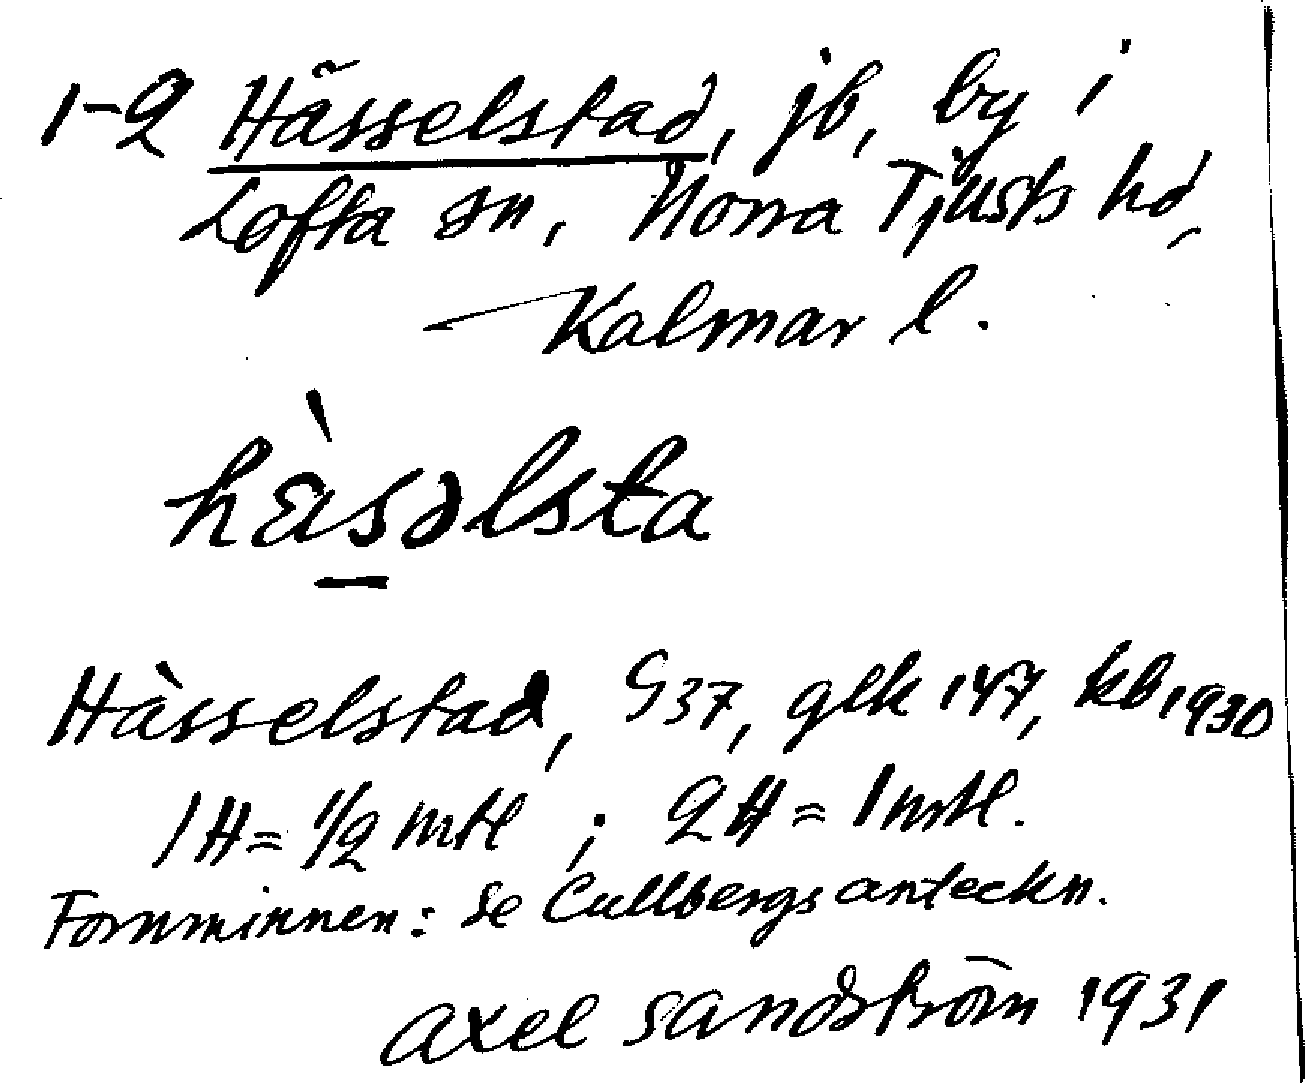 1-2 Hässelstad, jb, by i
Lofta sn, Norra Tjusts hd,
Kalmar l.
hàsəlsta
Hàsselstad, G37, glk 147, kb 1930
1 H = 1/2 mtl ; 2 H = 1 mtl.
Fornminnen: Se Cullbergs anteckn.
Axel Sandström 1931